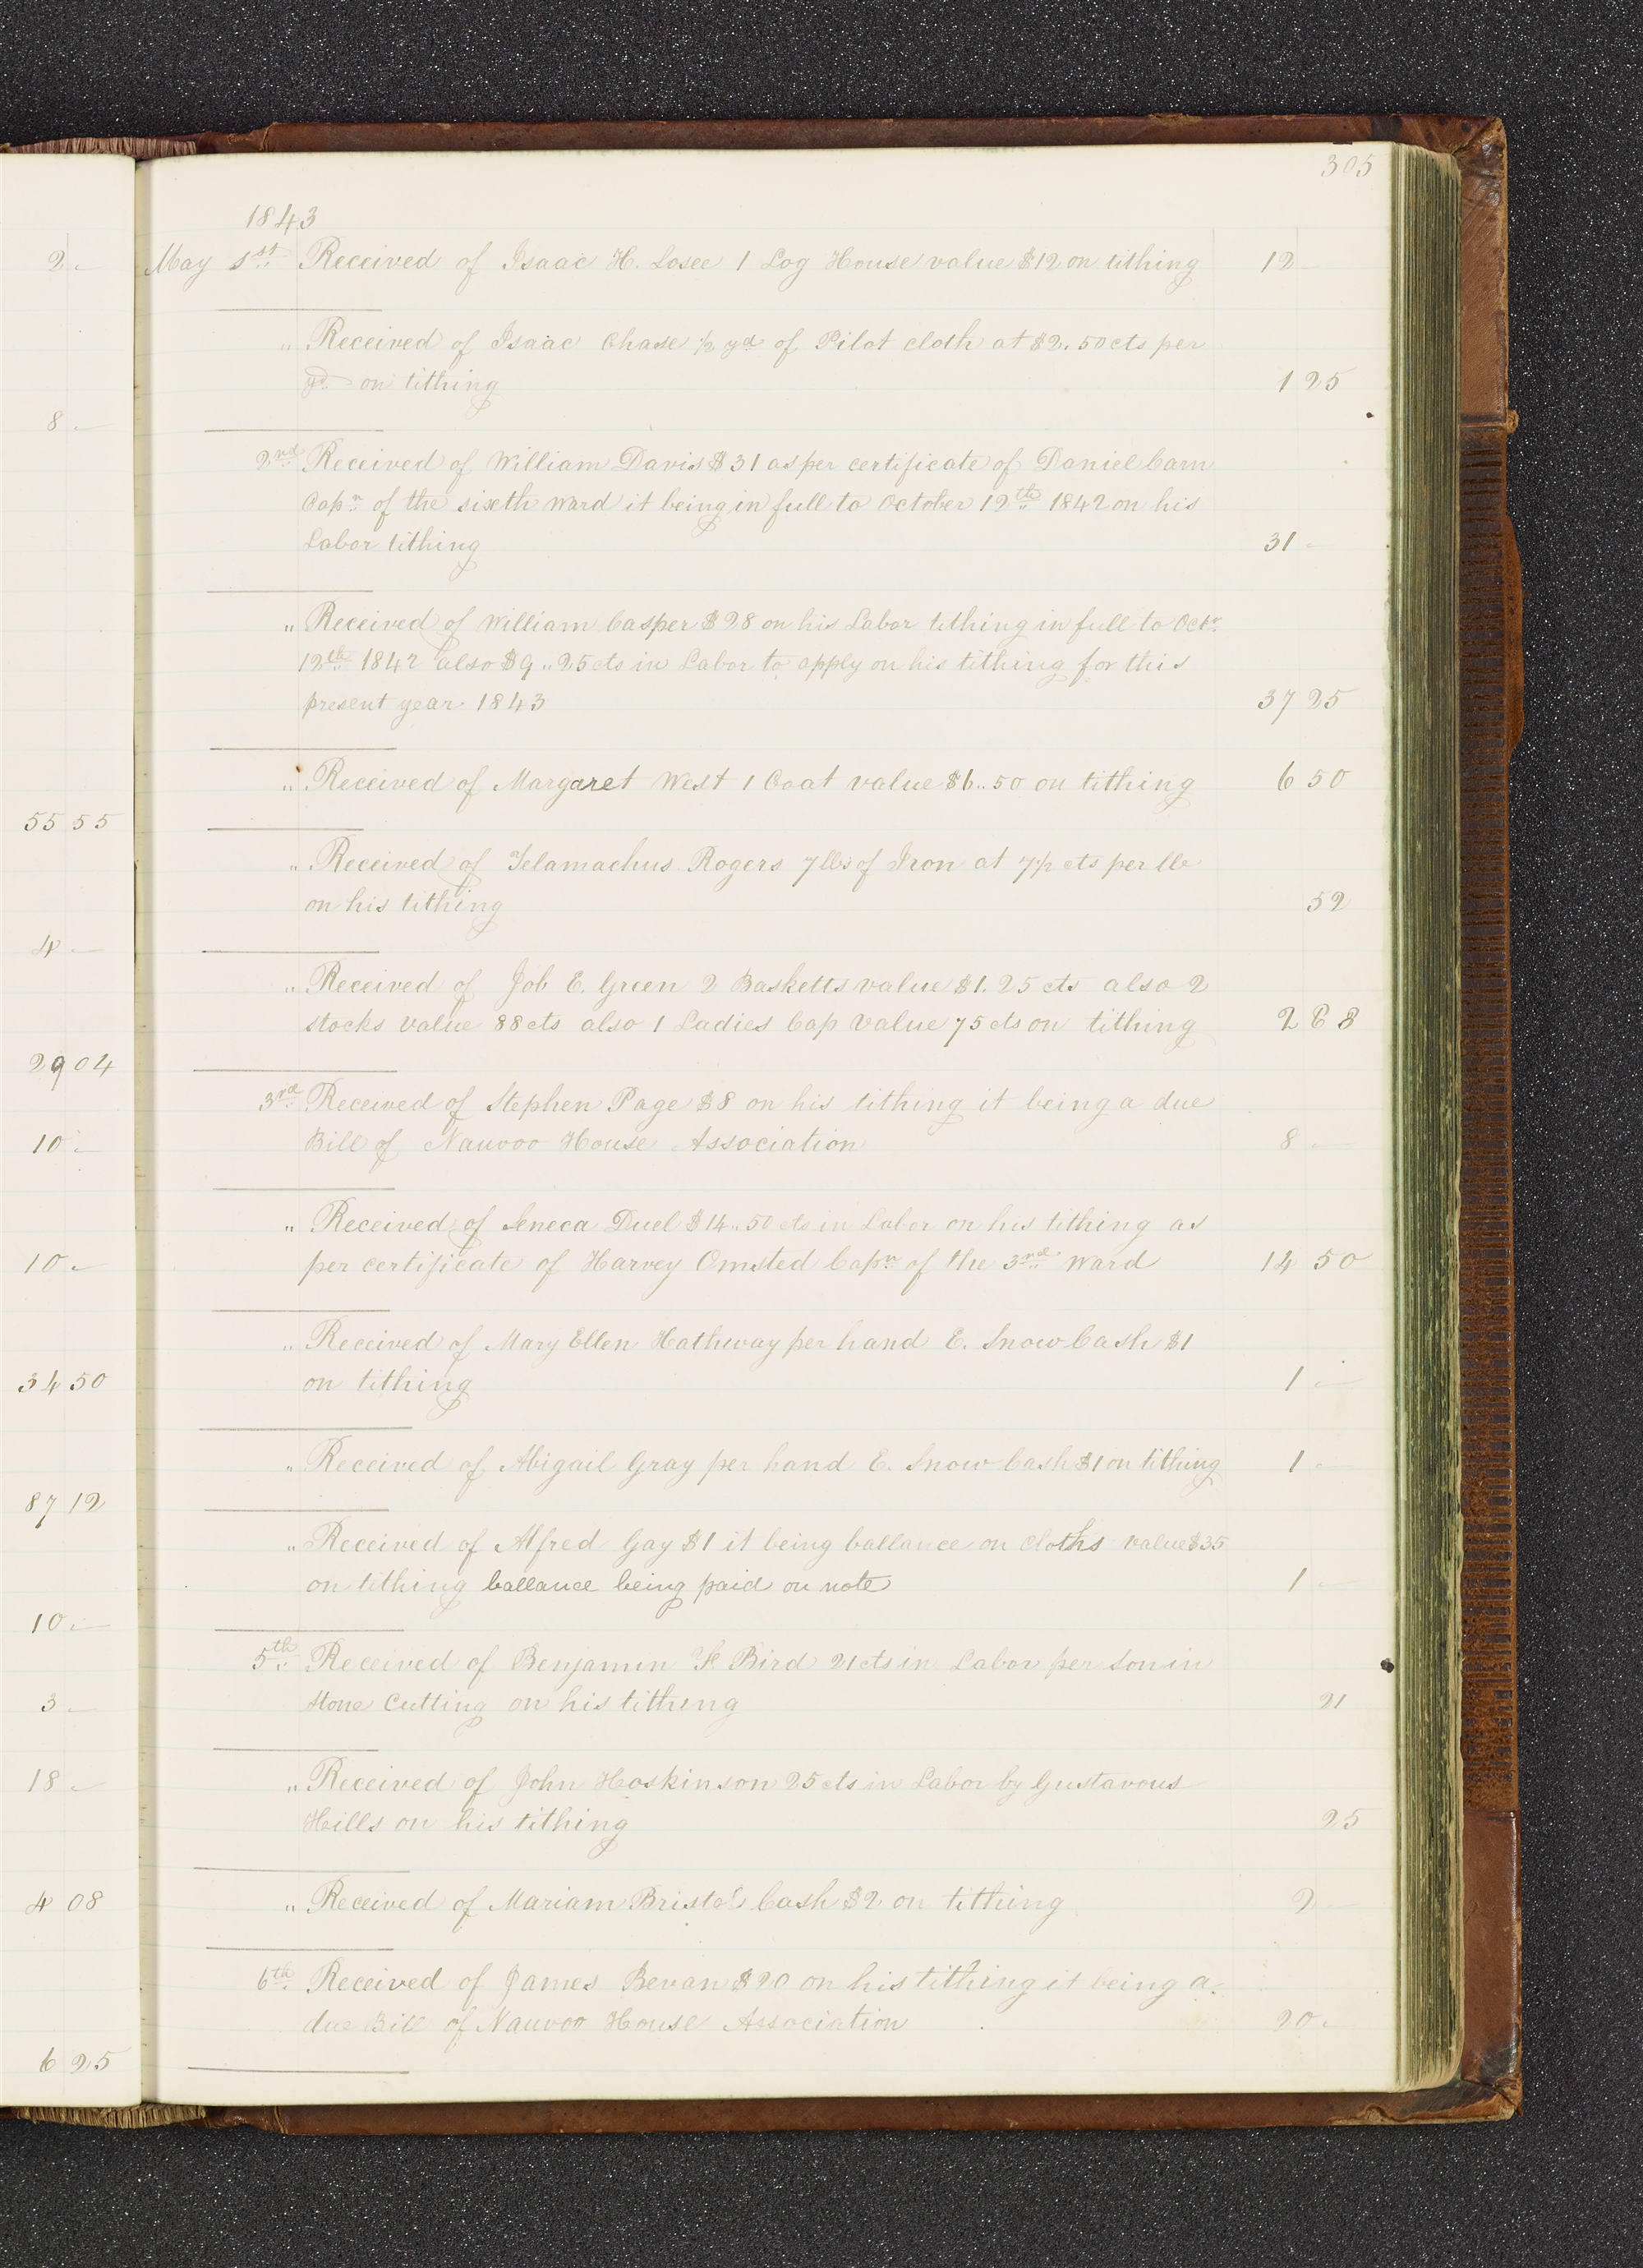 305
1843
2 - May 1st Received of Isaac H. Losee 1 Log House value $12 on tithing 12 -
" Received of Isaac Chase 1/2 yd of Pilot cloth at $2.50 cts per
yd on tithing 1 25
8 -
2nd Received of William Davis $31 as per certificate of Daniel Carn
Capn of the sixeth Ward it being in full to October 12th 1842 on his
Labor tithing 31 -
" Received of William Casper $28 on his Labor tithing in full to Octr
12th 1842 also $9..25 cts in Labor to apply on his tithing for this
present year 1843 37 25
" Received of Margaret West 1 Coat value $6..50 on tithing 6 50
55 55
" Received of Telamachus Rogers 7 lbs of Iron at 7 1/2 cts per lb
on his tithing 52
4 -
" Received of Job E. Green 2 Basketts value $1.25 cts also 2
stocks value 88 cts also 1 Ladies Cap value 75 cts on tithing 2 88
29 04
3rd Received of Stephen Page $8 on his tithing it being a due
10 - Bill of Nauvoo House Association 8 -
" Received of Seneca Duel $14..50 cts in Labor on his tithing as
10 - per certificate of Harvey Omsted Capn of the 3rd Ward 14 50
" Received of Mary Ellen Hathway per hand E. Snow Cash $1
34 50 on tithing 1 -
" Received of Abigail Gray per hand E. Snow Cash $1 on tithing 1 -
87 12
" Received of Alfred Gay $1 it being ballance on Cloths value $35
on tithing ballance being paid on note 1 -
10 -
5th Received of Benjamin F. Bird 21 cts in Labor per son in
3 - Stone Cutting on his tithing 21
18 - " Received of John Hoskinson 25 cts in Labor by Gustavous
Hills on his tithing 25
4 08 " Received of Mariam Bristol Cash $2 on tithing 2 -
6th Received of James Bevan $20 on his tithing it being a
due Bill of Nauvoo House Association 20 -
6 25